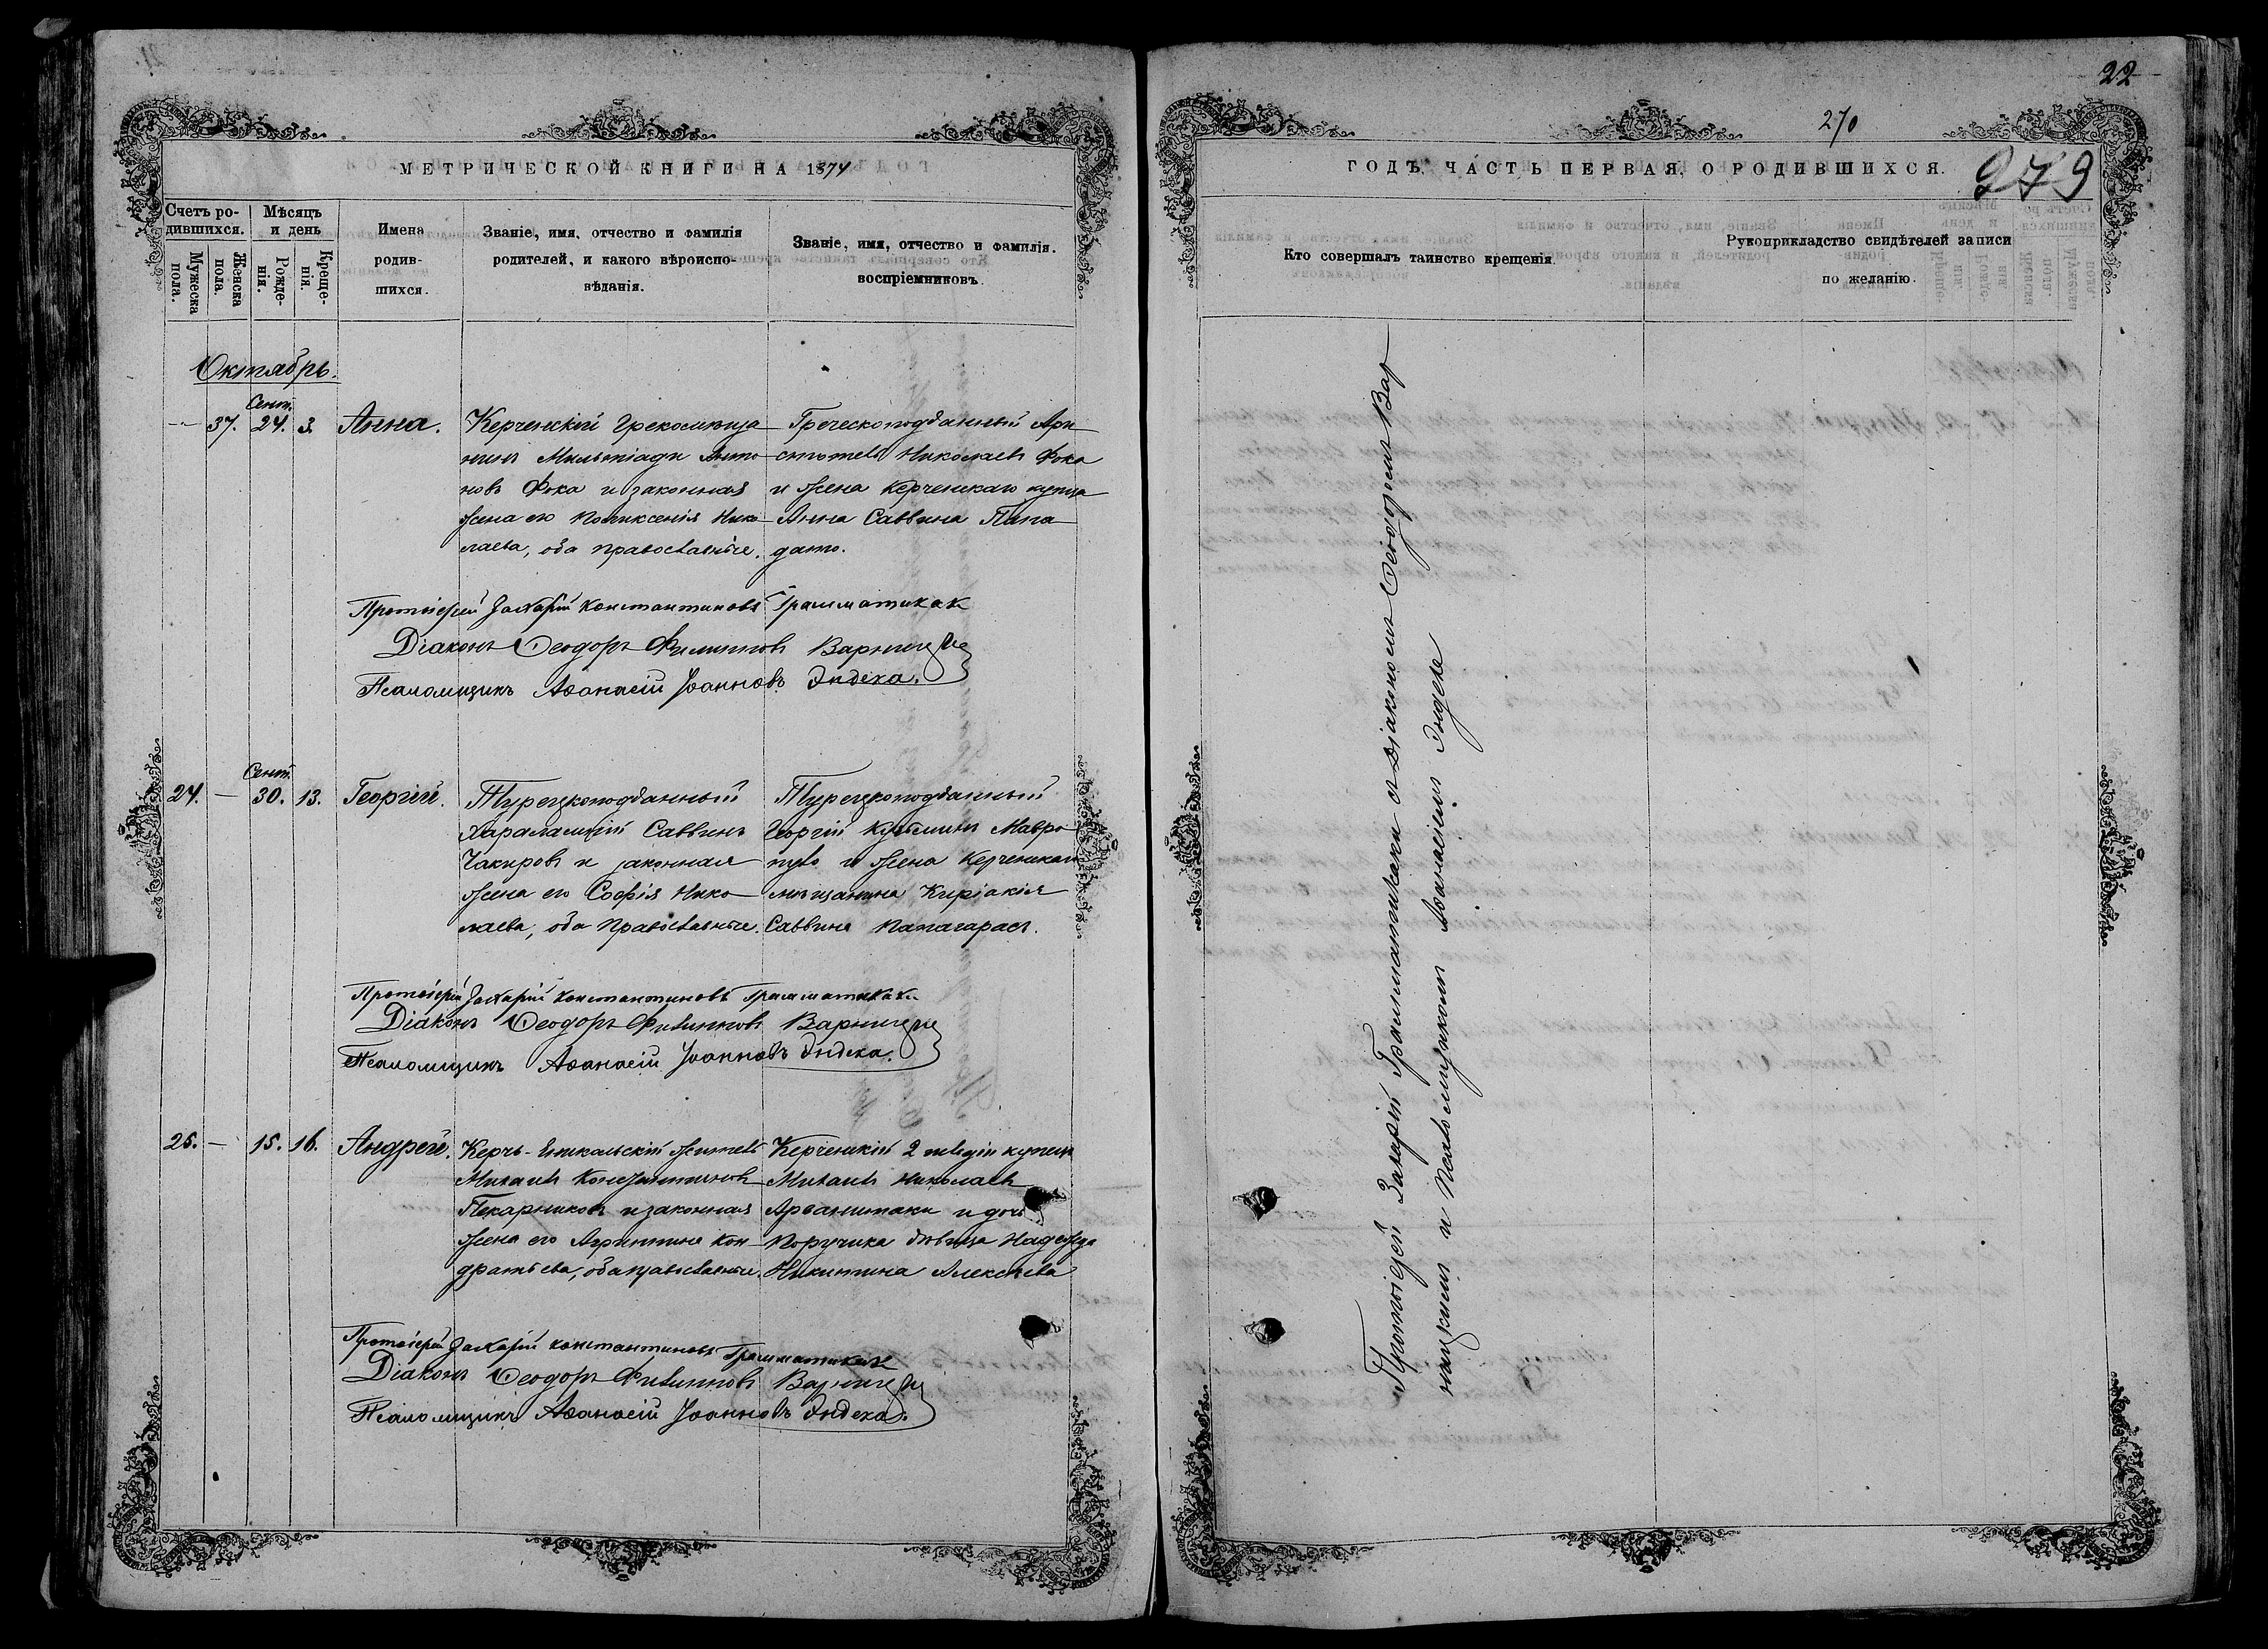 МЕТРИЧЕСКОЙ КНИГИ НА 1874
Счетъ ро-
дившихся.
Мужеска
пола.
Женска
пола.
Мѣсяцъ
и день
Рожде-
нія.
Креще-
нія.
Имена
родив-
шихся.
Званіе, имя, отчество и фамилія
родителей, и какого вѣроиспо-
вѣданія.
Званіе, имя, отчество и фамилія.
воспріемниковъ.
Октябрь.
Сент.
37. 24. 3. Анна.
Керченскій грекомѣща
нинъ Мильтіади Анто
новъ Фока и законная
жена его Поликсенія Нико
лаева, оба православные.
Греческоподданный Ари
стотель Николаевъ Фока
и жена Керченскаго купца
Анна Саввина Папа
дато.
Протоіерей Захарій Константиновъ Грамматикаки
Діаконъ Ѳеодоръ Филипповъ
Псаломщикъ Аѳанасій Іоанновъ Индеха.
Сент.
24. — 30. 13. Георгій.
Турецкоподданный
Харалампій Саввинъ
Чакировъ и законная
жена его Софія Нико
лаева, оба православные.
Турецкоподданный
Георгій Кузьминъ Мавро
пуло и жена Керченскаго
мѣщанина Киріакія
Саввина
Протоіерей Захарій Константиновъ Грамматикаки
Діаконъ Ѳеодоръ Филипповъ
Псаломщикъ Аѳанасій Іоанновъ Индеха.
25. — 15. 16. Андрей.
Керчь-Еникальскій житель
Михаилъ Константиновъ
Пекарниковъ и законная
жена его Агриппина Кон
дратьева, оба православные.
Керченскій 2 гильдіи купецъ
Михаилъ Николаевъ
Арванитаки и дочь
Поручика дѣвица Надежда
Никитина Алексѣева
Протоіерей Захарій Константиновъ Грамматикаки
Діаконъ Ѳеодоръ Филипповъ
Псаломщикъ Аѳанасій Іоанновъ Индеха.
22
270
279
ГОДЪ, ЧАСТЬ ПЕРВАЯ, О РОДИВШИХСЯ.
Кто совершалъ таинство крещенія.
Рукоприкладство свидѣтелей записи
по желанію.
Протоіерей Захарій Грамматикаки съ Діакономъ Ѳеодоромъ Вар
и Псаломщикомъ Аѳанасіемъ Индеха